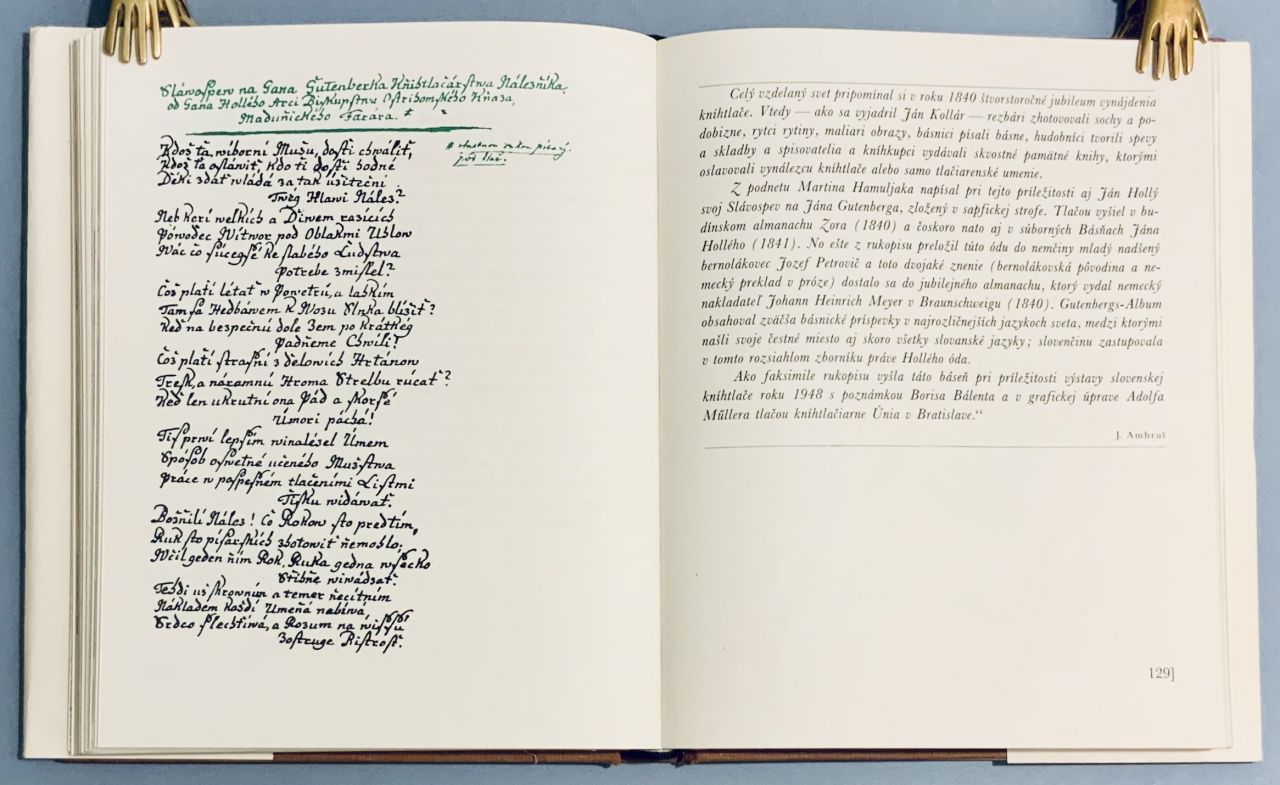 Sláwospew na Gana Gutenberka Kňihtlačárstwa Nálezňíka,
od Gana Hollého Arci Biskupstwa Ostrihomského Kňaza,
Maduňického Farára. *
* vlastnou rukou písaný
pre tlač.
Kdož ťa, wíborní Mužu, dosťi chwáliť,
Kdož ťa osláwiť, kdo ťi dosťi hodné
Ďeki zdať wládá za tak úžitečni
Tweg Hlawi Nález?
Neb kerí welkích a Ďiwem razících
Pówodec Witwor pod Oblakmi Uhlow
Wác čo súcegšé ke slabého Ludstwa
Potrebe zmislel?
Což platí létať w Powetrú, a lahkím
Tam sa Hedbáwem k Wozu Slnka blížiť?
Keď na bezpečnú dole Zem po krátkég
Padňeme Chwíli?
Což platí strašní z ďelowích Hrtánow
Tresk, a náramnú Hroma Strelbu rúcať?
Keď len ukrutní ona Pád a skoršé
Úmori páchá!
Tis prwí lepším winalézel Umem
Spósob oswetné učeného Mužstwa
Práce w pospešném tlačeními Listmi
Ťisku widáwať.
Božňilí Nález! Čo Rokow sto predtím,
Ruk sto písarskích zhotowiť ňemohlo;
Wčil geden ním Rok, Ruka gedna wšecko
Stihňe wiwádzať.
Tehdi už skrowním a temer ňecítním
Nákladem každí Umeňá nabíwá,
Srdco šlechtiwá, a Rozum na wiššú
Zostruge Bistrosť.
Celý vzdelaný svet pripomínal si v roku 1840 štvorstoročné jubileum vynájdenia
kníhtlače. Vtedy — ako sa vyjadril Ján Kollár — rezbári zhotovovali sochy a po-
dobizne, rytci rytiny, maliari obrazy, básnici písali básne, hudobníci tvorili spevy
a skladby a spisovatelia a kníhkupci vydávali skvostné pamätné knihy, ktorými
oslavovali vynálezcu kníhtlače alebo samo tlačiarenské umenie.
Z podnetu Martina Hamuljaka napísal pri tejto príležitosti aj Ján Hollý
svoj Slávospev na Jána Gutenberga, zložený v sapfickej strofe. Tlačou vyšiel v bu-
dínskom almanachu Zora (1840) a čoskoro nato aj v súborných Básňach Jána
Hollého (1841). No ešte z rukopisu preložil túto ódu do nemčiny mladý nadšený
bernolákovec Jozef Petrovič a toto dvojaké znenie (bernolákovská pôvodina a ne-
mecký preklad v próze) dostalo sa do jubilejného almanachu, ktorý vydal nemecký
nakladateľ Johann Heinrich Meyer v Braunschweigu (1840). Gutenbergs-Album
obsahoval zväčša básnické príspevky v najrozličnejších jazykoch sveta, medzi ktorými
našli svoje čestné miesto aj skoro všetky slovanské jazyky; slovenčinu zastupovala
v tomto rozsiahlom zborníku práve Hollého óda.
Ako faksimile rukopisu vyšla táto báseň pri príležitosti výstavy slovenskej
kníhtlače roku 1948 s poznámkou Borisa Bálenta a v grafickej úprave Adolfa
Müllera tlačou kníhtlačiarne Únia v Bratislave.“
J. Ambruš
129]